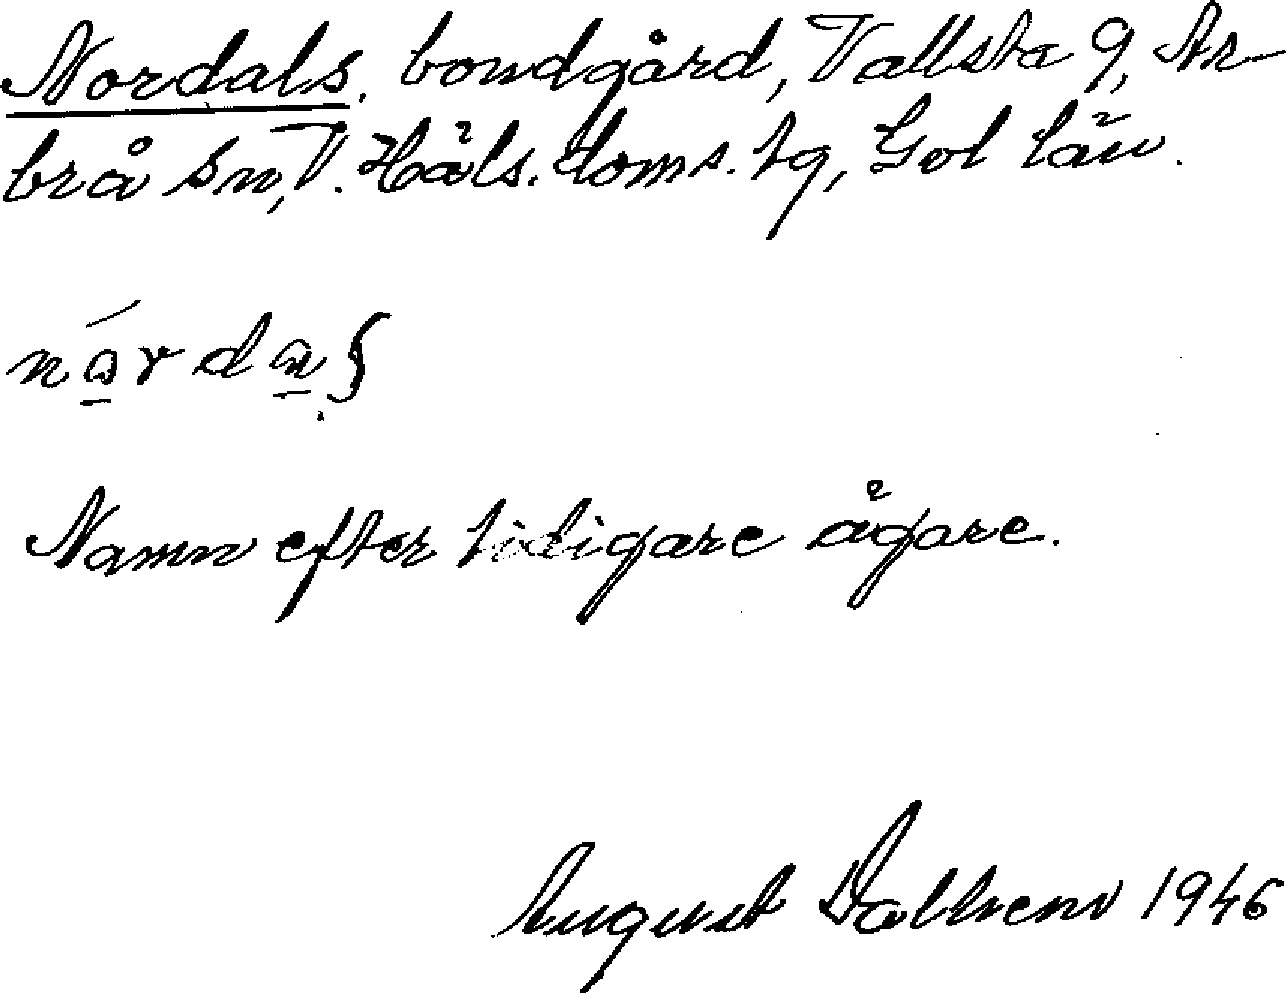 Nordals. bondgård, Vallsta 9, Ar-
brå sn, V. Häls. doms. tg, Gvl län.
Namn efter tidigare ägare.
August 1946